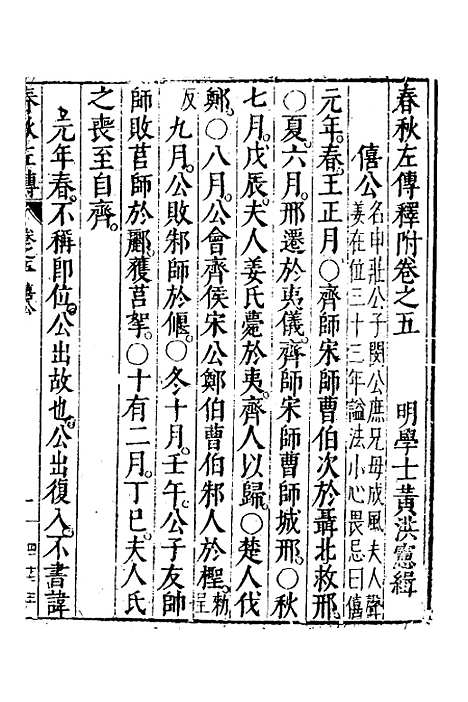 春秋左傳釋附卷之五　　明學士黃洪憲緝
僖公名申莊公子閔公庶兄母成風夫人聲
姜在位三十三年謚法小心畏忌曰僖
元年春王正月○齊師宋師曹伯次於聶北救邢
○夏六月邢遷於夷儀齊師宋師曹師城邢○秋
七月戊辰夫人姜氏薨於夷齊人以歸○楚人伐
鄭○八月公會齊侯宋公鄭伯曹伯邾人於檉勑呈
反九月公敗邾師於偃○冬十月壬午公子友帥
師敗莒師於酈獲莒挐○十有二月丁巳夫人氏
之喪至自齊
元年春不稱即位公出故也公出復入不書諱
春秋左傳　卷之五僖公　一